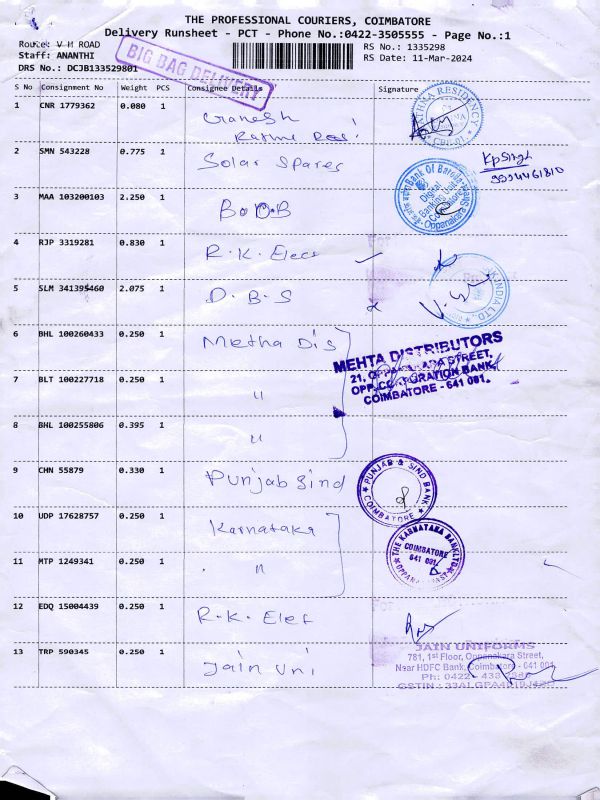 THE PROFESSIONAL COURIERS, COIMBATORE
Delivery Runsheet - PCT - Phone No.:0422-3505555 - Page No.:1
Route: V H ROAD
RS No.: 1335298
Staff: ANANTHI
RS Date: 11-Mar-2024
DRS No.: DCJB133529801
BIG BAG DELIVERY
S No Consignment No Weight PCS Consignee Details Signature
1 CNR 1779362 0.080 1 Ganesh
2 SMN 543228 0.775 1 Solar Spares
Kpsingh
3 MAA 103200103 2.250 1 BOB
Bank Of Baroda
Digital
Banking Unit
Coimbatore
4 RJP 3319281 0.830 1 R.K. Elect
5 SLM 341395460 2.075 1 D.B.S
INDIA LTD.
6 BHL 100260433 0.250 1 Metha Dis
MEHTA DISTRIBUTORS
21, OPPANAKARA STREET,
OPP. CORPORATION BANK,
COIMBATORE - 641 001.
7 BLT 100227718 0.250 1 "
8 BHL 100255806 0.395 1 "
9 CHN 55879 0.330 1 Punjab Sind
PUNJAB & SIND BANK
COIMBATORE
10 UDP 17628757 0.250 1 Karnataka
THE KARNATAKA BANK LTD.
COIMBATORE
641 001
11 MTP 1249341 0.250 1 "
12 EDQ 15004439 0.250 1 R.K. Elet
13 TRP 590345 0.250 1 Jain Uni
JAIN UNIFORMS
781, 1st Floor, Oppanakara Street,
Near HDFC Bank, Coimbatore - 641 001
Ph: 0422 - 438
GSTIN :